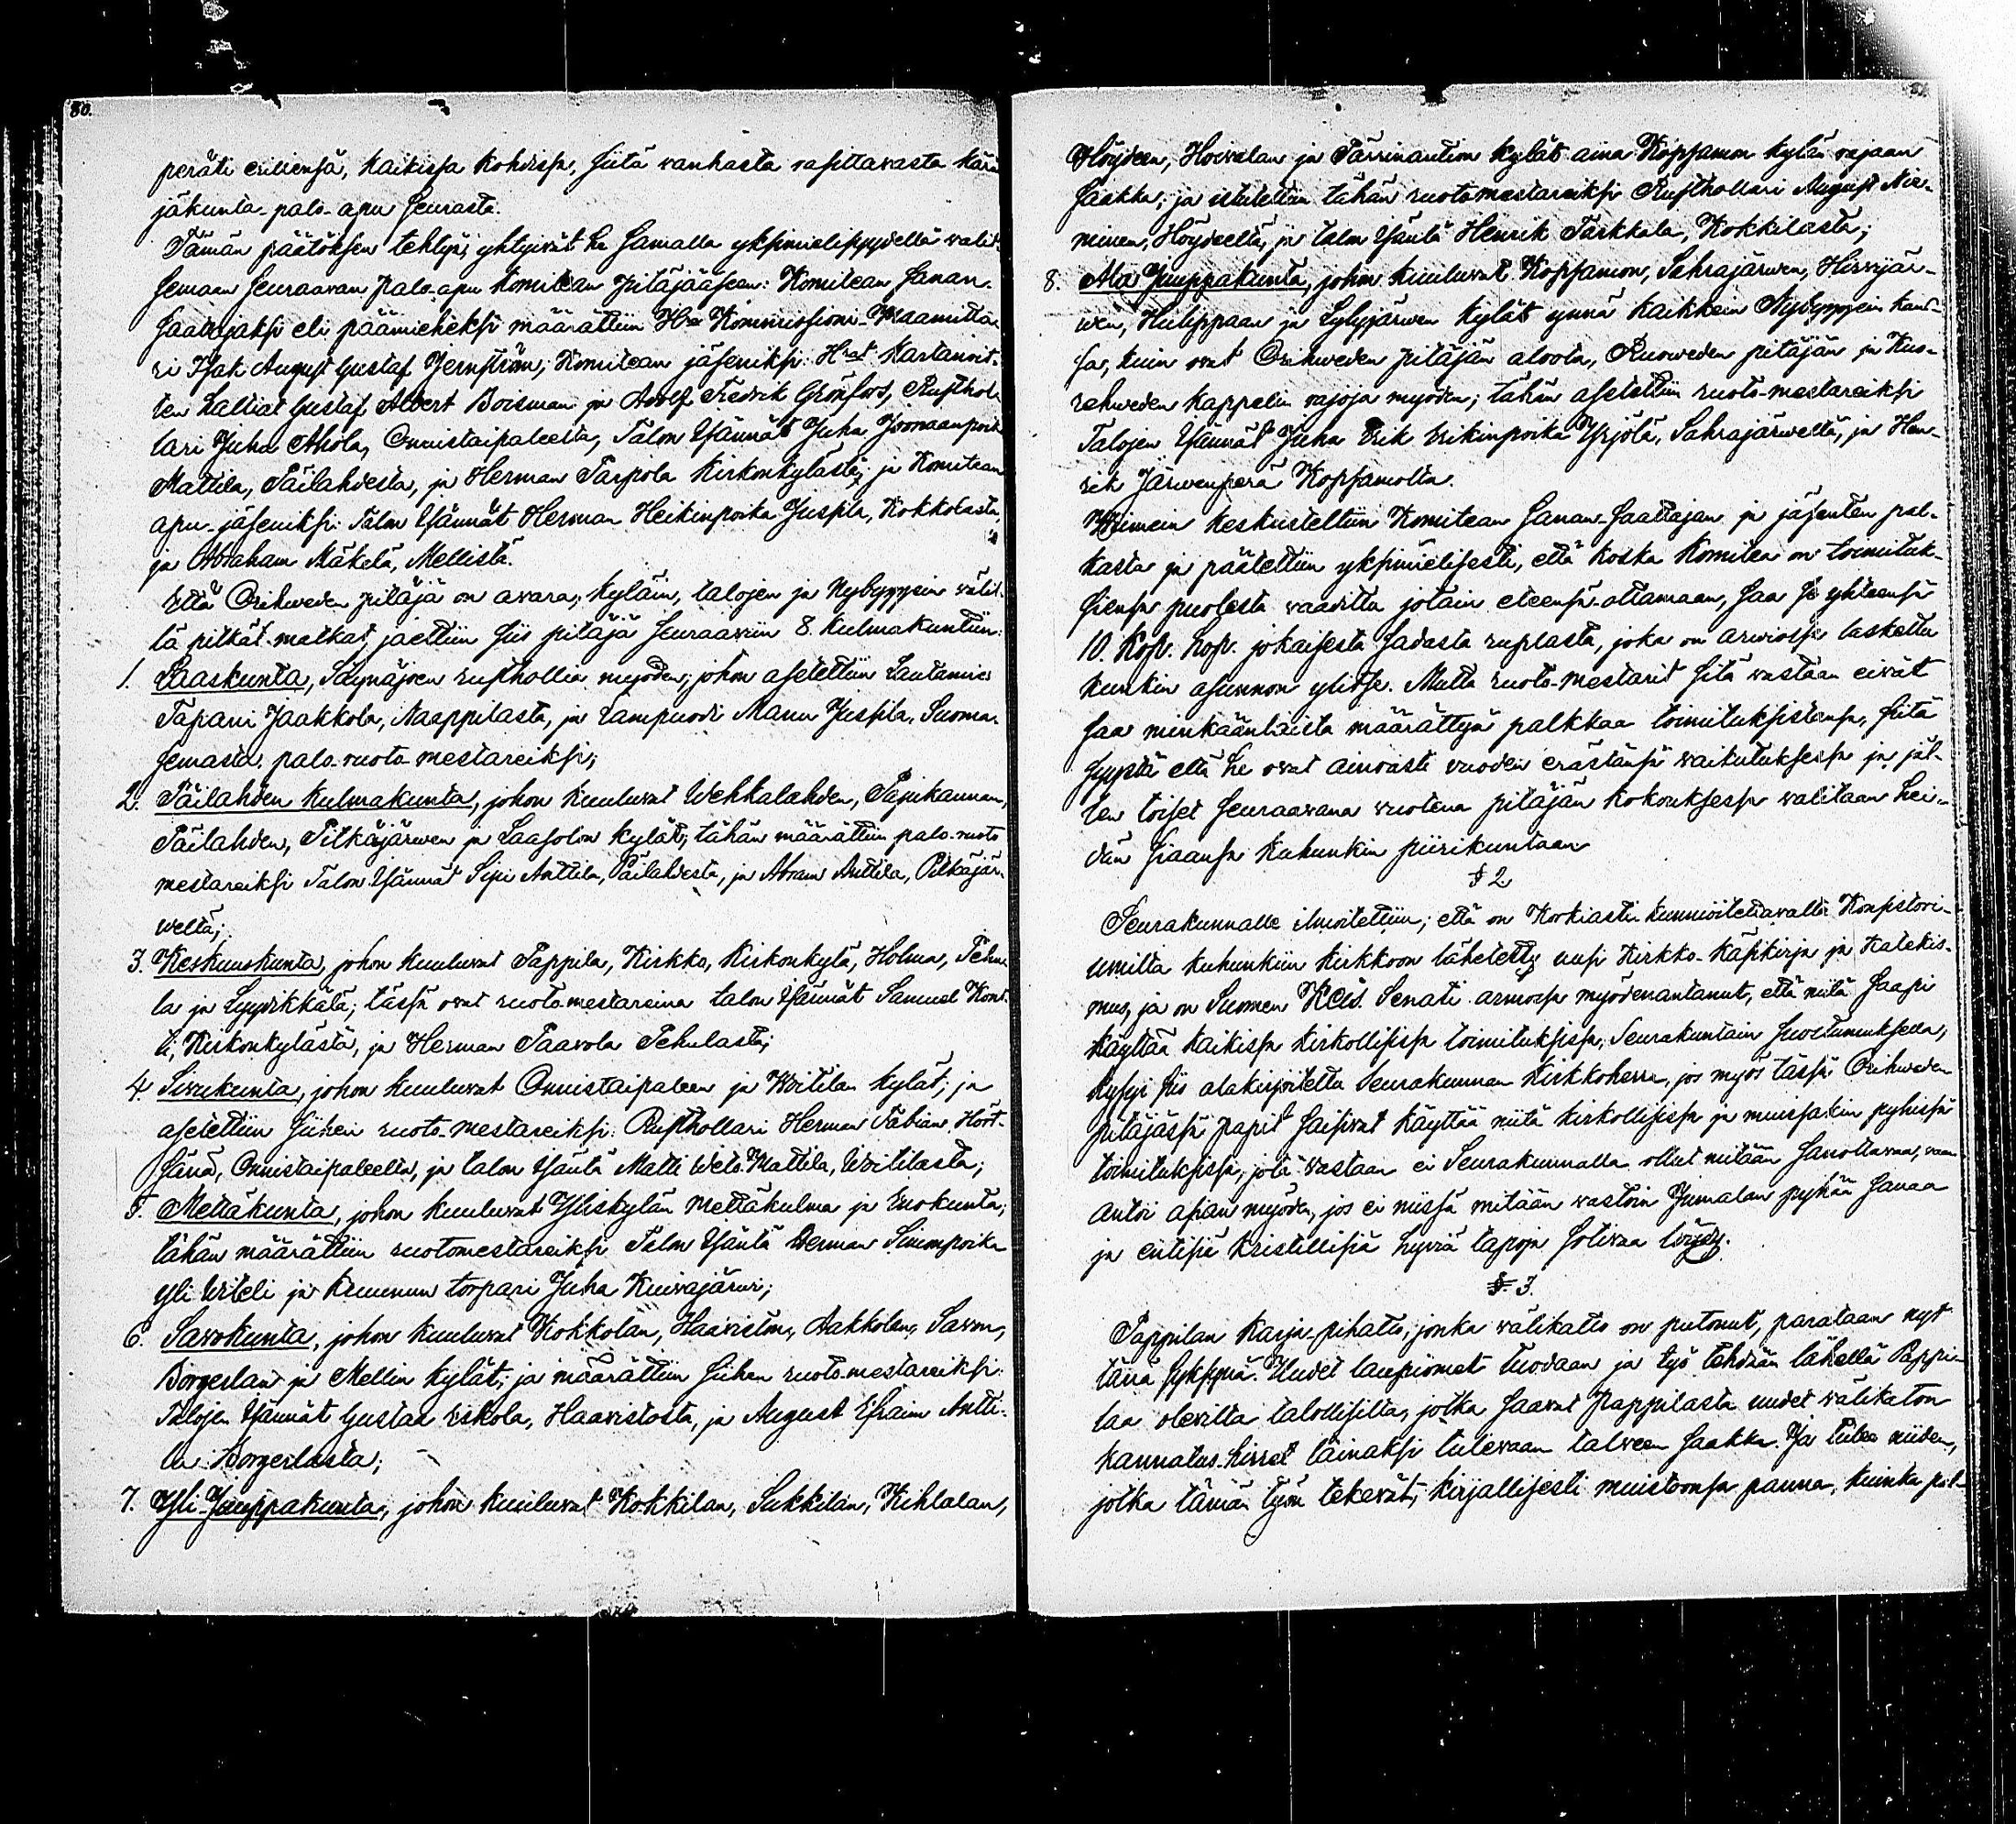 80.
peräti erillensä, kaikissa kohdissa, siitä vanhasta rasittavasta kärä
jäkunta-palo-apu Seurasta.
Tämän päätöksen tehtyä, yhtyivät he samalla yksimielisyydellä valit-
semaan seuraavan palo-apu Komitean pitäjääseen: Komitean Sanan-
saattajaksi eli päämieheksi määrättiin Hra Kommissioni-Maamitta-
ri Isak August Gustaf Jernström; Komitean jäseniksi: Hrat Kartanoit-
ten haltiat Gustaf Albert Boisman ja Adolf Fredrik Grönfors, Rusthol-
lari Juha Ahola, Onnistaipaleelta, Talon Isännät Juha Joonaanpoika
Mattila, Päilahdesta, ja Herman Parpola Kirkonkylästä; ja Komitean
apu-jäseniksi: Talon Isännät Herman Heikinpoika Jussila, Kokkolasta,
ja Abraham Mäkelä, Mellistä.
Että Orihweden pitäjä on avara, kyläin, talojen ja Nybyyppein välil-
lä pitkät matkat, jaettiin siis pitäjä seuraaviin 8. kulmakuntiin:
1. Laaskunta, Säynäjoen rusthollia myöden; johon asetettiin Lautamies
Tapani Jaakkola, Naappilasta, ja Lampuodi Manu Jussila, Suoma-
semasta, palo-ruoto-mestareiksi;
2. Päilahden kulmakunta, johon kuuluvat Wehkalahden, Pajukannan,
Päilahden, Pitkäjärwen ja Laasolan kylät; tähän määrättiin palo-ruoto
mestareiksi Talon Isännät Sipi Anttila, Päilahdesta, ja Abram Anttila, Pitkäjär-
weltä;
3. Keskuuskunta, johon kuuluvat Pappila, Kirkko, Kirkonkylä, Holma, Tehu
la ja Lyyrikkälä; tässä ovat ruoto-mestareina talon Isännät Samuel Kont-
ti, Kirkonkylästä, ja Herman Paavola Tehulasta;
4. Sivukunta, johon kuuluvat Onnistaipaleen ja Woitilan kylät; ja
asetettiin siihen ruoto-mestareiksi: Rusthollari Herman Fabian Hört-
sänä, Onnistaipaleelta, ja talon Isäntä Matti Weto Mattila, Woitilasta;
5. Mettäkunta, johon kuuluvat Yliskylän Mettäkulma ja Enokunta;
tähän määrättiin ruotomestareiksi Talon Isäntä Herman Simonpoika
Yli Urteli ja Kruunun torpari Juha Kuivajärwi;
6. Savokunta, johon kuuluvat Kokkolan, Haaviston, Aakkolan, Savon,
Borgerlan ja Mellin kylät; ja määrättiin siihen ruoto-mestareiksi:
Talojen Isännät Gustaa Eskola, Haavistosta, ja August Efraim Antti-
la Borgerlasta;
7. Yli-Juuppakunta, johon kuuluvat Kokkilan, Sukkilan, Kihlalan,
81.
Höydeen, Howalan ja Pärrinautien kylät aina Koppamon kylän rajaan
saakka; ja istutettiin tähän ruotomestareiksi Rusthollari August Nie-
minen, Höydeeltä, ja talon Isäntä Henrik Parkkala, Kokkilasta;
8. Ala Juuppakunta, johon kuuluvat Kopsamon, Sahrajärwen, Hirvijär-
wen, Huleppaan ja Lylyjärwen kylät ynnä kaikkein Nybyyppein kans-
sa, kuin ovat Orihweden pitäjän aloolla, Ruoweden pitäjän ja Kuo-
rehweden kappelin rajoja myöden; tähän asetettiin ruoto-mestareiksi
Talojen Isännät Juha Erik Erikinpoika Yrjölä, Sahrajärweltä, ja Hen-
rik Järwenperä Kopsamolta.
Wiimein keskusteltiin Komitean Sanan-Saattajan ja jäsenten pal-
kasta ja päätettiin yksimielisesti, että koska Komitea on toimituk-
siensa puolesta vaadittu jotain eteensä-ottamaan, saa se yhteensä
10. Kop. hop. jokaisesta sadasta ruplasta, joka on arwiossa laskettu
kunkin asunnon ylitse. Mutta ruoto-mestarit sitä vastaan eivät
saa minkäänlaista määrättyä palkkaa toimituksistansa, siitä
syystä että he ovat ainoasti vuoden erästänsä vaikutuksessa ja jäl-
len toiset seuraavana vuotena pitäjän kokouksessa valitaan hei-
dän siaansa kuhunkin piirikuntaan
§ 2
Seurakunnalle ilmoitettiin; että on Korkiasti kunnioitettavalta Konsistori-
umilta kuhunkiin kirkkoon lähetetty uusi Kirkko-Käsikirja ja Katekis-
mus, ja on Suomen Keis. Senati armossa myödenantanut, että niitä saapi
käyttää kaikissa kirkollisissa toimituksissa, Seurakuntain suostumuksella,
kysyi siis alakirjoitettu Seurakunnan Kirkkoherra, jos myös tässä Orihweden
pitäjässä papit saisivat käyttää niitä kirkollisissa ja muissakin pyhissä
toimituksissa, jota vastaan ei Seurakunnalla ollut mitään sanottavaa, vaan
antoi asian myöden, jos ei niissä mitään vastoin Jumalan pyhää sanaa
ja entisiä kristillisiä hyviä tapoja sotivaa löydy.
§ 3.
Pappilan karja-pihatto, jonka välikatto on putonut, parataan nyt
tänä syksynä. Uudet laupiomet tuodaan ja työ tehdään lähellä Pappi-
laa olevilta talollisilta, jotka saavat Pappilasta uudet välikaton
kannatus-hirret lainaksi tulevaan talveen saakka. Ja tulee niiden,
jotka tämän työn tekevät, kirjallisesti muistoonsa panna, kuinka pal-